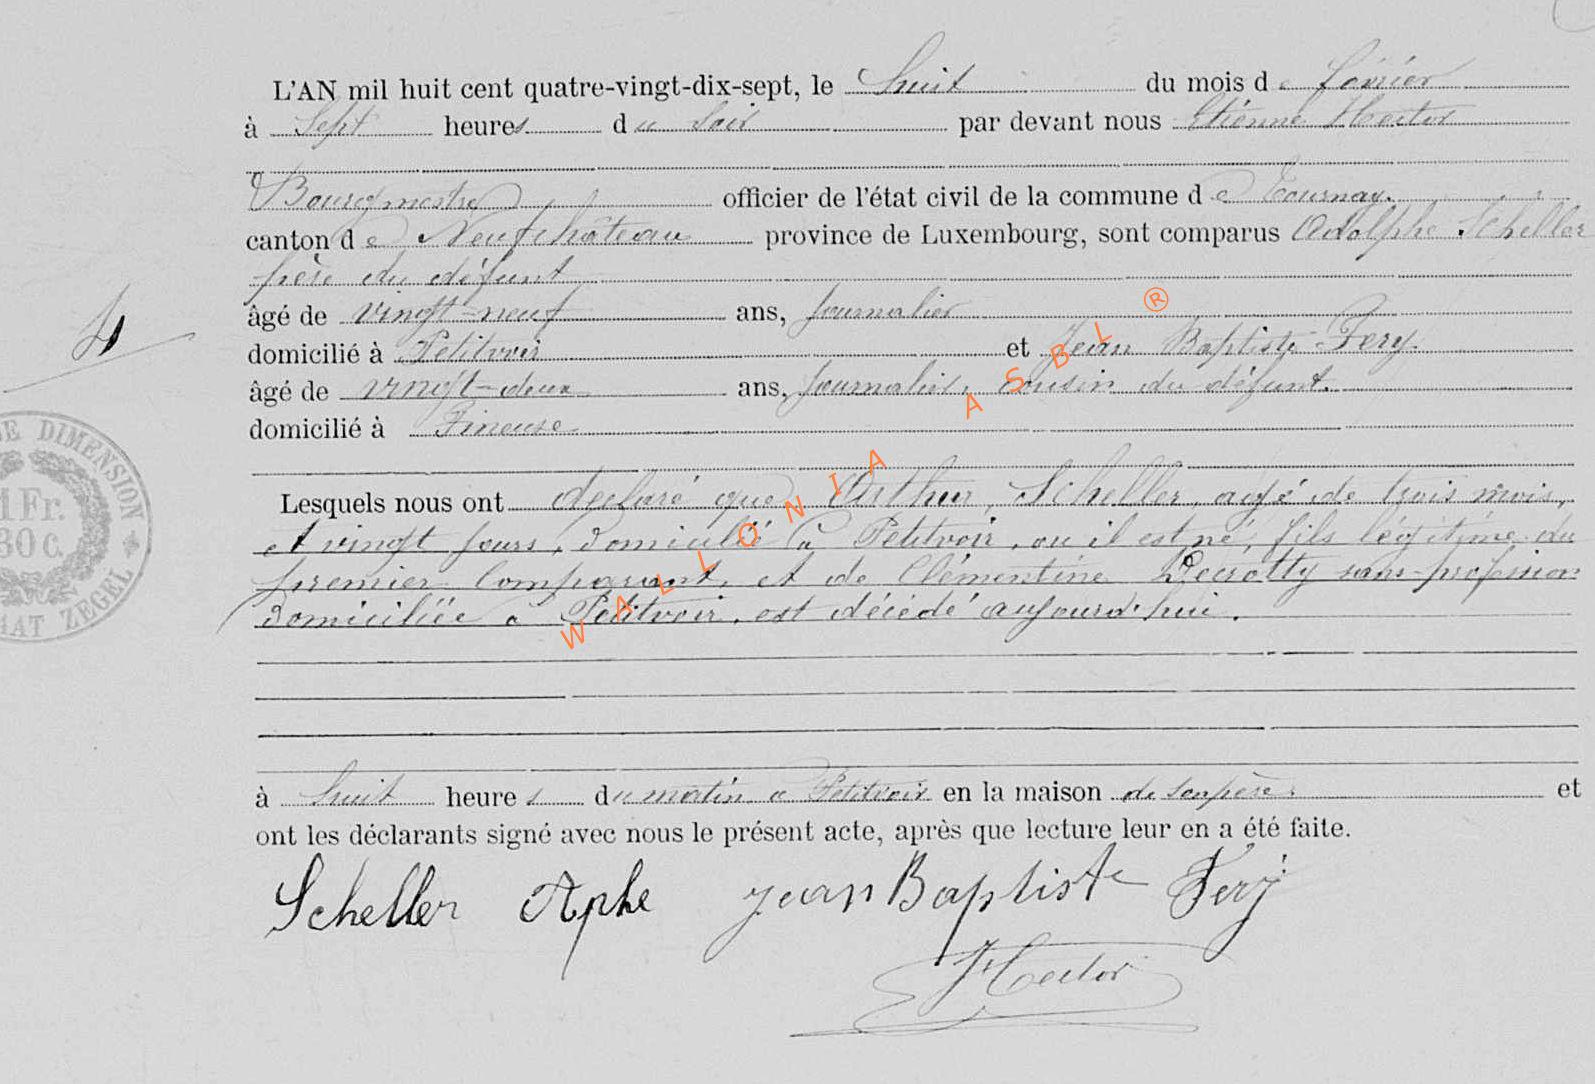 L'AN mil huit cent quatre-vingt-dix-sept, le huit du mois de février
à Sept heures du soir par devant nous Etienne Hector
Bourgmestre officier de l'état civil de la commune de Tournay.
canton de Neufchâteau province de Luxembourg, sont comparus Adolphe Scheller
père du défunt
âgé de vingt-neuf ans, journalier
4
domicilié à Petitvoir et Jean Baptiste Fery.
âgé de vingt-deux ans, journalier, cousin du défunt.
domicilié à Fineuse
DE DIMENSION
1 Fr.
30 C.
ZEGEL
Lesquels nous ont déclaré que Arthur Scheller, agé de trois mois,
et vingt jours, domicilié à Petitvoir, ou il est né, fils légitime du
premier Comparant, et de Clémentine Decrotty sans profession
domiciliée à Petitvoir, est décédé aujourd'hui.
à huit heures du matin à Petitvoir en la maison de son père et
ont les déclarants signé avec nous le présent acte, après que lecture leur en a été faite.
Scheller Aphe Jean Baptiste Fery
Hector
WALLONIA ASBL ®